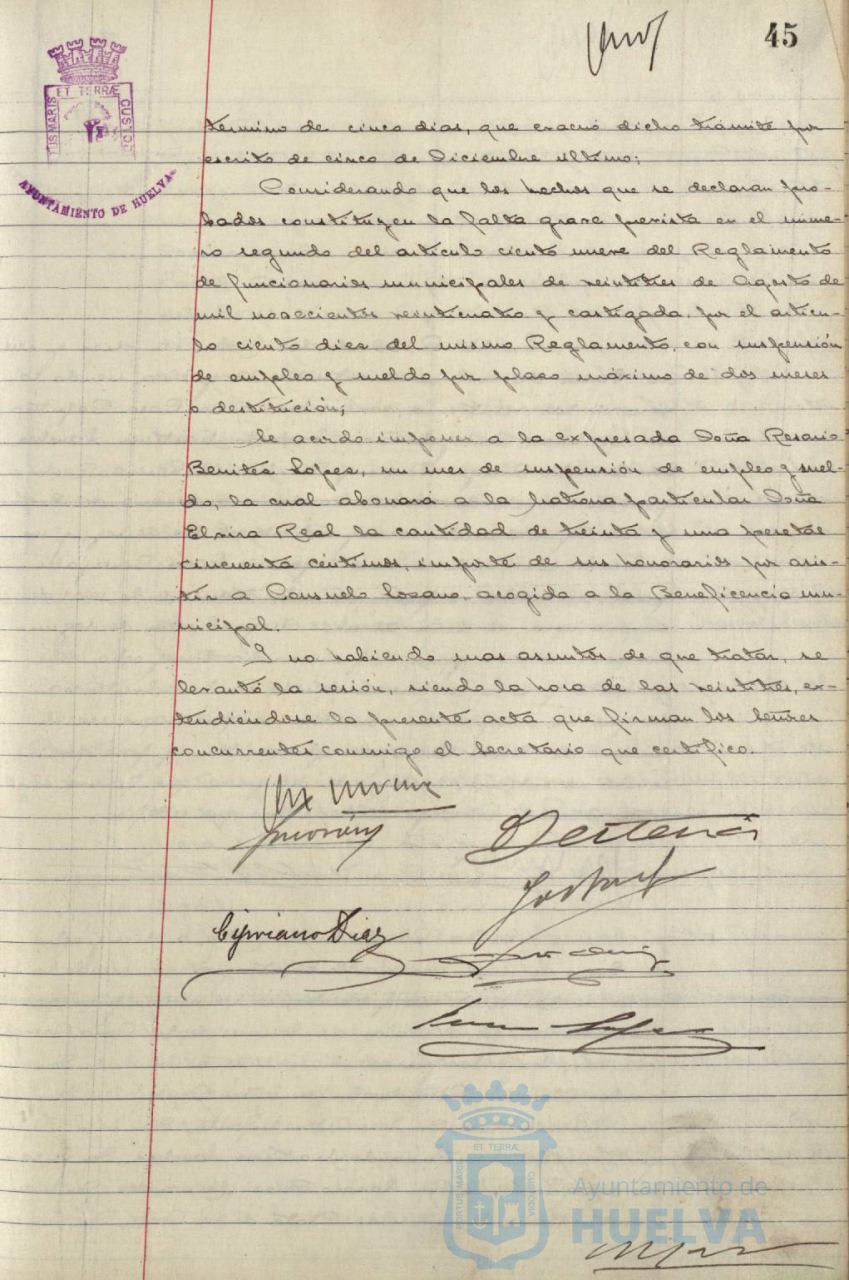 45
ET TERRÆ
TUS MARIS
CUSTOD
AYUNTAMIENTO DE HUELVA
término de cinco dias, que evacuó dicho trámite por
escrito de cinco de Diciembre último;
Considerando que los hechos que se declaran pro-
bados constituyen la falta grave prevista en el núme-
ro segundo del artículo ciento nueve del Reglamento
de funcionarios municipales de veintitres de Agosto de
mil novecientos veinticuatro y castigada, por el artícu-
lo ciento diez del mismo Reglamento, con suspensión
de empleo y sueldo por plazo máximo de dos meses
o destitución;
Se acordó imponer a la expresada Doña Rosario
Benitez Lopez, un mes de suspensión de empleo y suel-
do, la cual abonará a la matrona particular Doña
Elvira Real la cantidad de treinta y una pesetas
cincuenta céntimos, importe de sus honorarios por asis-
tir a Consuelo Lozano, acogida a la Beneficencia mu-
nicipal.
Y no habiendo mas asuntos de que tratar, se
levantó la sesión, siendo la hora de las veintitres, ex-
tendiéndose la presente acta que firman los Señores
concurrentes conmigo el Secretario que certifico.
Cipriano Diaz
ET TERRÆ
PORTUS MARIS
CUSTODIA
Ayuntamiento de
HUELVA